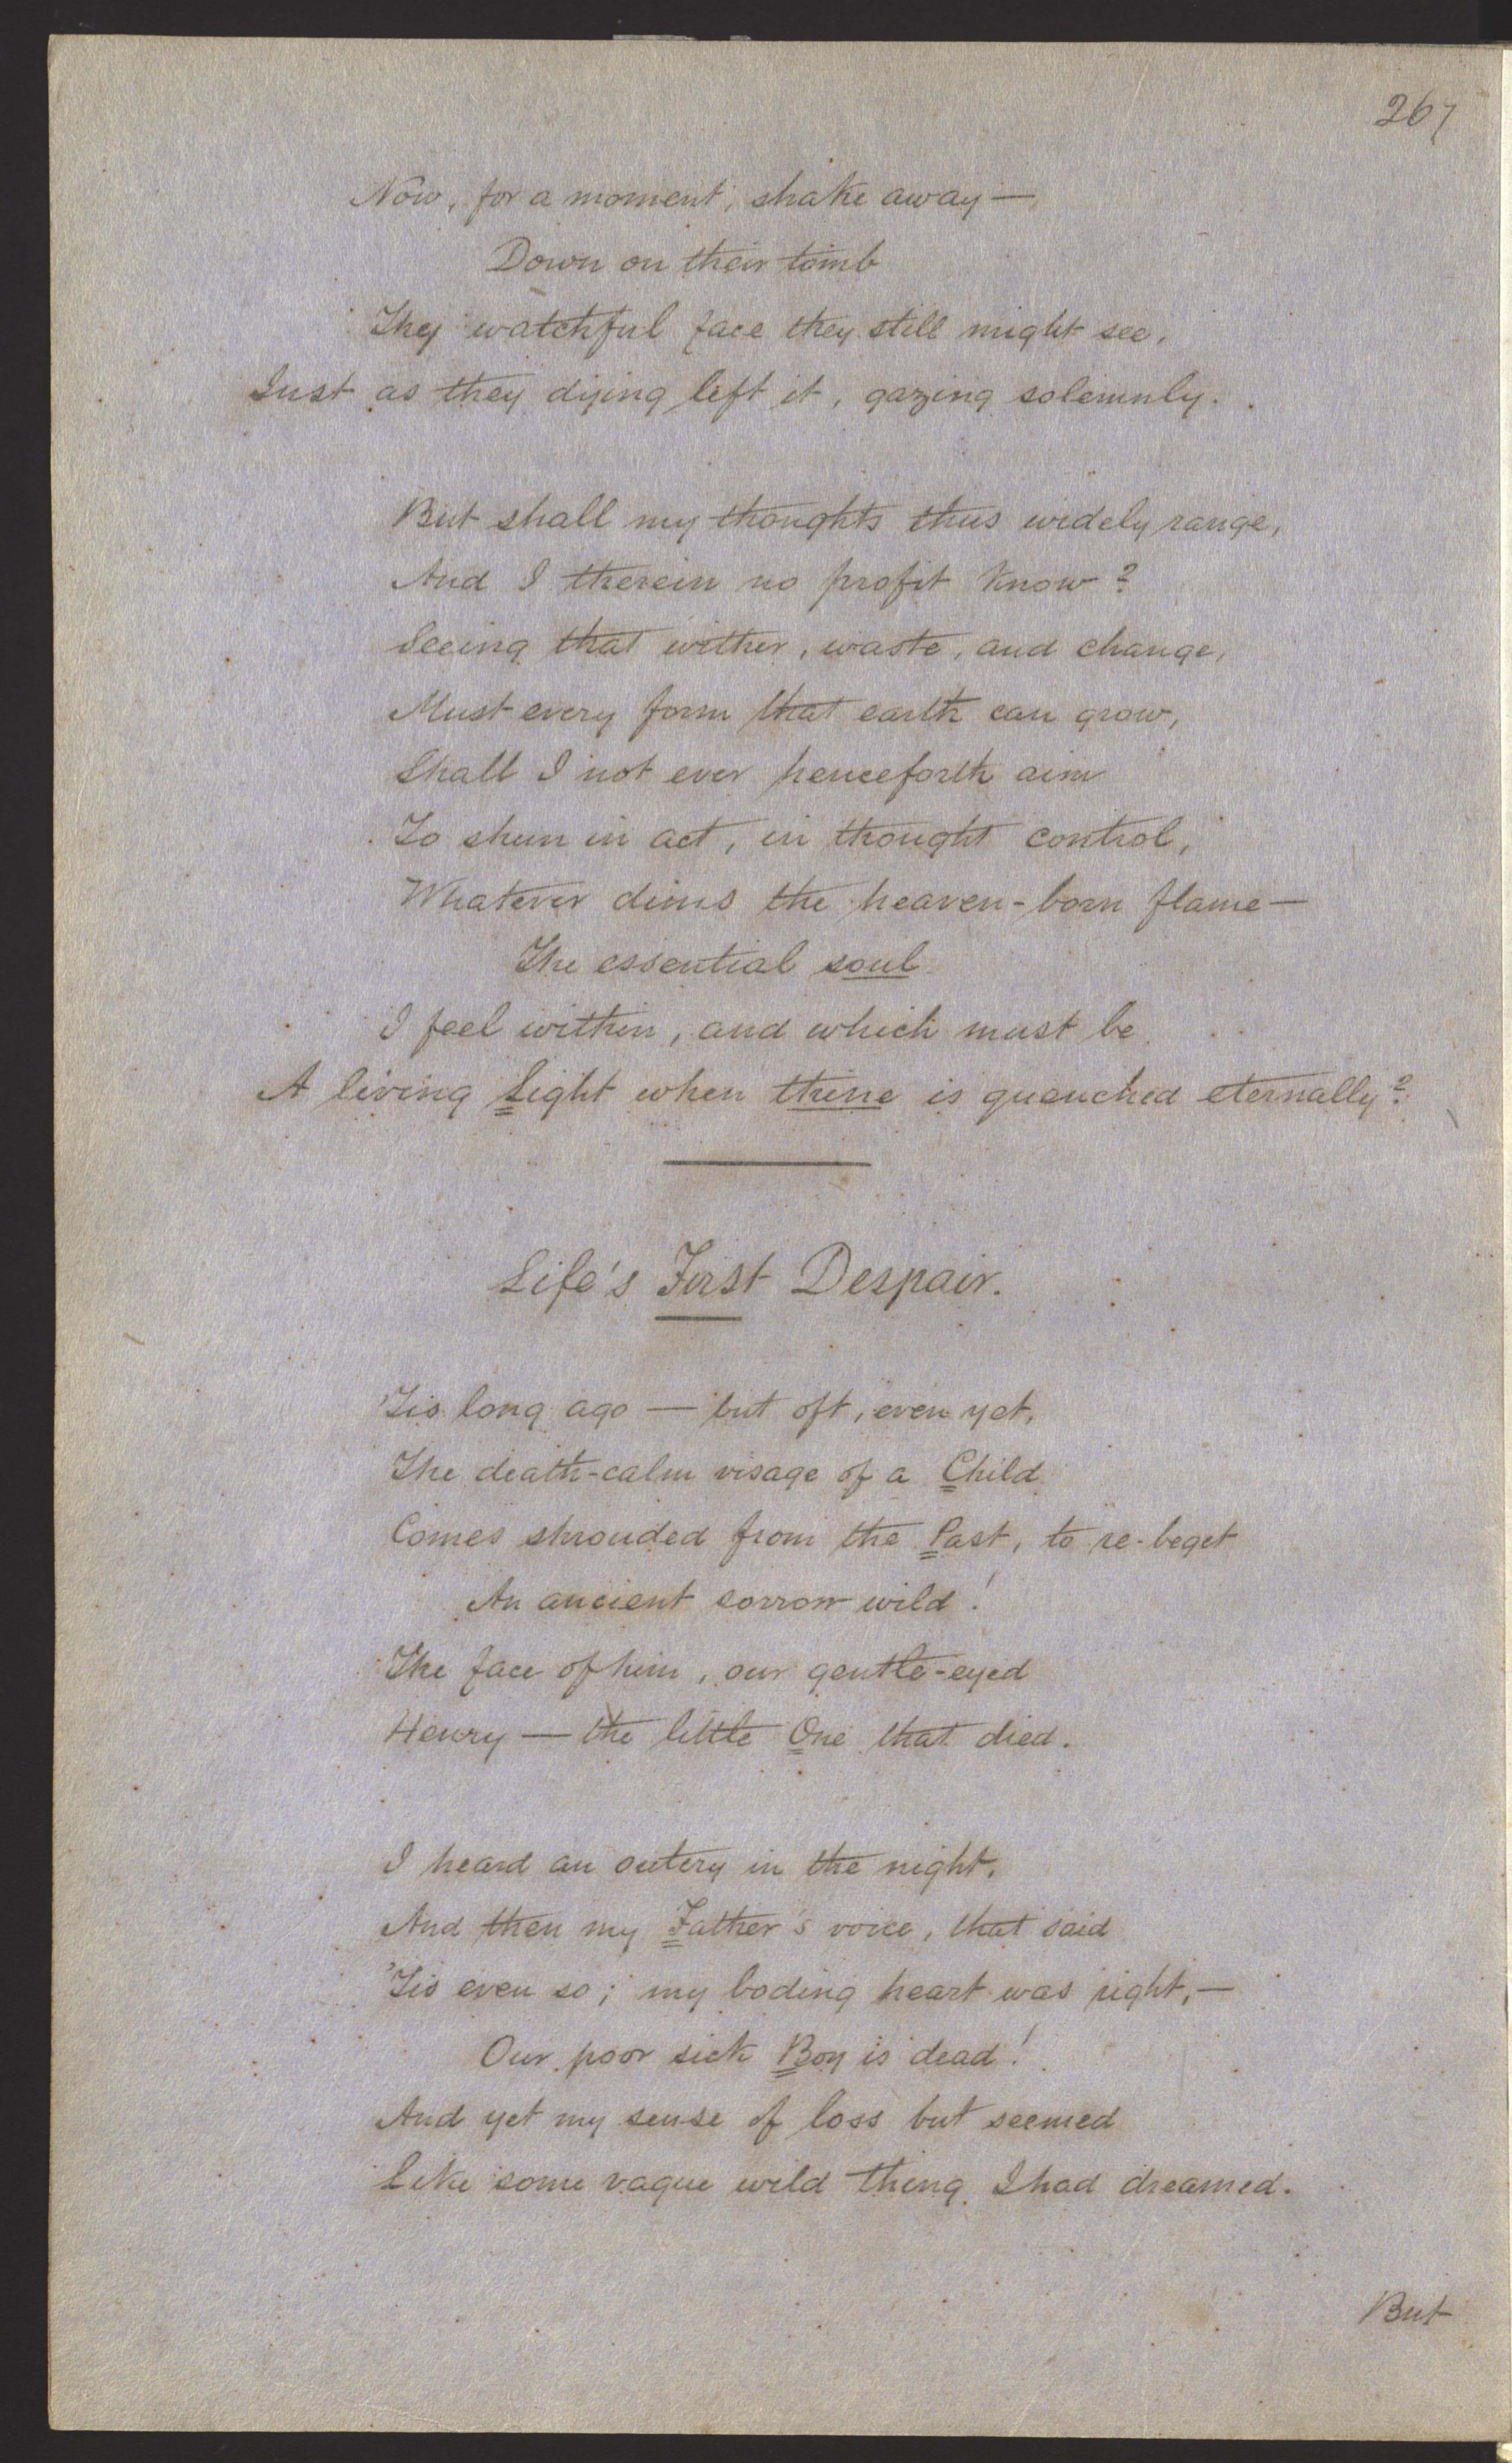 267
Now, for a moment, shake away —
Down on their tomb
Thy watchful face they still might see,
Just as they dying left it, gazing solemnly.
But shall my thoughts thus widely range,
And I therein no profit know?
Seeing that wither, waste, and change,
Must every form that earth can grow,
Shall I not ever henceforth aim
To shun in act, in thought control,
Whatever dims the heaven-born flame —
The essential soul
I feel within, and which must be
A living Light when thine is quenched eternally?
Life's First Despair.
'Tis long ago — but oft, even yet,
The death-calm visage of a Child
Comes shrouded from the Past, to re-beget
An ancient sorrow wild!
The face of him, our gentle-eyed
Henry — the little One that died.
I heard an outcry in the night,
And then my Father's voice, that said
'Tis even so; my boding heart was right, —
Our poor sick Boy is dead!
And yet my sense of loss but seemed
Like some vague wild thing I had dreamed.
But